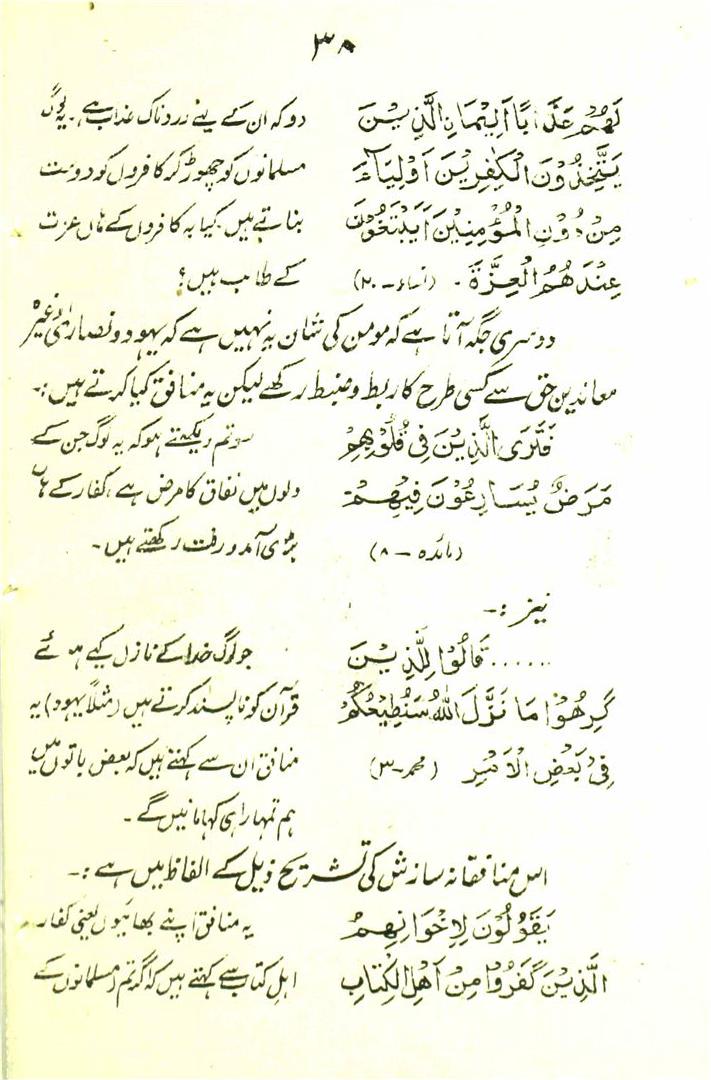 ۳۸
لَهُمْ عَذَابًا اَلِيْمَانِ الَّذِيْنَ
دو کہ ان کے لیے دردناک عذاب ہے۔ یہ لوگ
يَتَّخِذُوْنَ الْكٰفِرِيْنَ اَوْلِيَآءَ
مسلمانوں کو چھوڑ کر کافروں کو دوست
مِنْ دُوْنِ الْمُؤْمِنِيْنَ اَيَبْتَغُوْنَ
بناتے ہیں۔ کیا یہ کافروں کے ہاں عزت
عِنْدَهُمُ الْعِزَّةَ ۔ (نساء - ۲۰)
کے طالب ہیں؟
دوسری جگہ آتا ہے کہ مومن کی شان یہ نہیں ہے کہ یہود و نصاریٰ وغیرہ
معاندین حق سے کسی طرح کا ربط و ضبط رکھے لیکن یہ منافق کیا کرتے ہیں :۔
فَتَرَى الَّذِيْنَ فِىْ قُلُوْبِهِمْ
سو تم دیکھتے ہو کہ یہ لوگ جن کے
مَرَضٌ يُسَارِعُوْنَ فِيْهِمْ
دلوں میں نفاق کا مرض ہے، کفار کے ہاں
(مائدہ - ۸)
بڑی آمد و رفت رکھتے ہیں۔
نیز :۔
...... قَالُوْا لِلَّذِيْنَ
جو لوگ خدا کے نازل کیے ہوئے
كَرِهُوْا مَا نَزَّلَ اللهُ سَنُطِيْعُكُمْ
قرآن کو ناپسند کرتے ہیں (مثلاً یہود) یہ
فِىْ بَعْضِ الْاَمْرِ (محمد - ۳)
منافق ان سے کہتے ہیں کہ بعض باتوں میں
ہم تمہارا ہی کہا مانیں گے۔
اس منافقانہ سازش کی تشریح ذیل کے الفاظ میں ہے :۔
يَقُوْلُوْنَ لِاِخْوَانِهِمُ
یہ منافق اپنے بھائیوں یعنی کفار
الَّذِيْنَ كَفَرُوْا مِنْ اَهْلِ الْكِتٰبِ
اہل کتاب سے کہتے ہیں کہ اگر تم (مسلمانوں کے